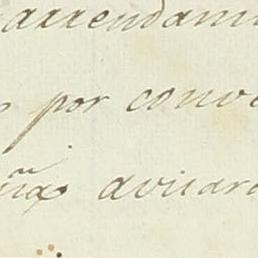 arrendami
por conve
avisara